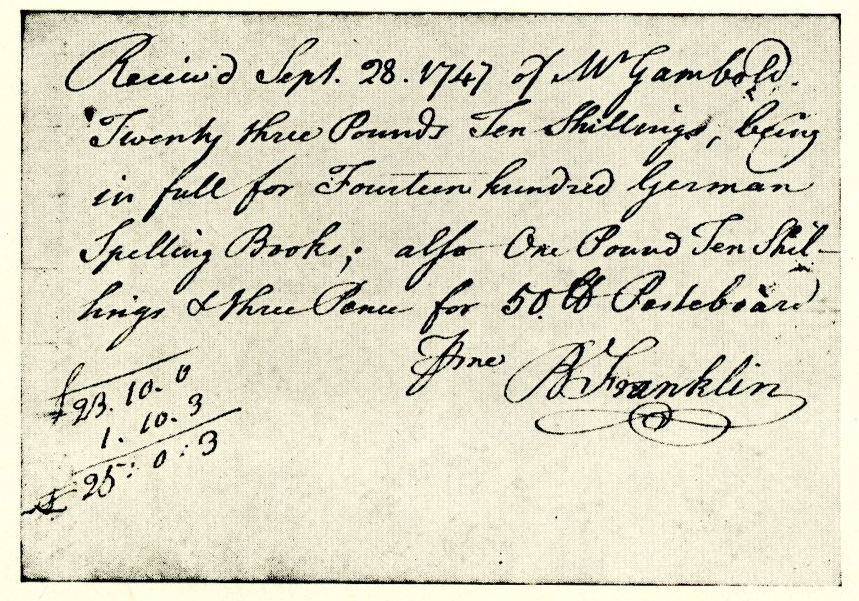 Receiv'd Sept. 28. 1747 of Mr Gambold.
Twenty three Pounds Ten Shillings, being
in full for Fourteen hundred German
Spelling Books; also One Pound Ten Shil-
lings & three Pence for 50 lb Pasteboard
₱ me B Franklin
£ 23. 10. 0
1. 10. 3
£ 25: 0: 3